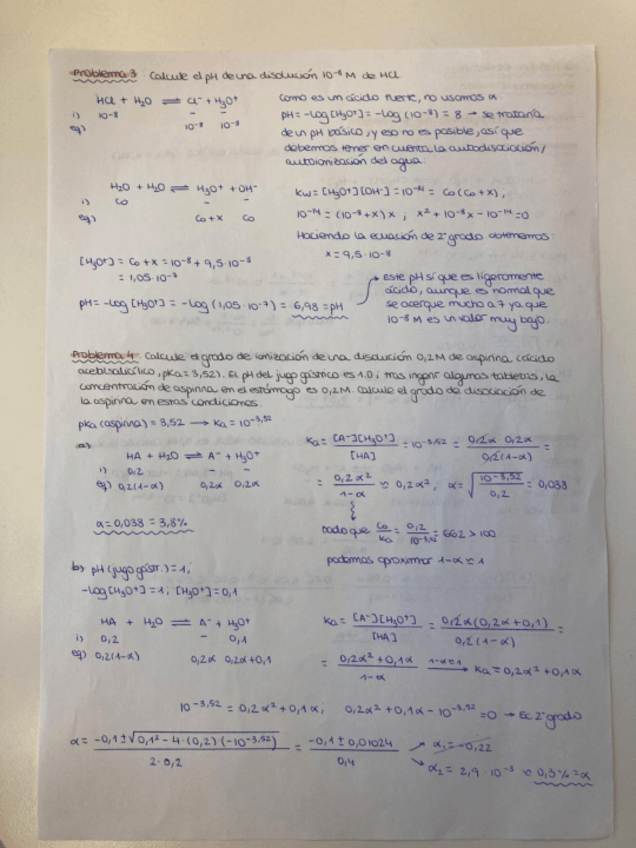 Problema 3: Calcule el pH de una disolución 10⁻⁸ M de HCl.
HCl + H₂O ⇌ Cl⁻ + H₃O⁺
i) 10⁻⁸ – –
eq) 10⁻⁸ 10⁻⁸
Como es un ácido fuerte, no usamos α
pH = -log[H₃O⁺] = -log (10⁻⁸) = 8 → se trataría
de un pH básico, y eso no es posible, así que
debemos tener en cuenta la autodisociación/
autoionización del agua:
H₂O + H₂O ⇌ H₃O⁺ + OH⁻
i) C₀ – –
eq) C₀+x C₀
Kw = [H₃O⁺][OH⁻] = 10⁻¹⁴ = C₀(C₀+x);
10⁻¹⁴ = (10⁻⁸+x)x ; x² + 10⁻⁸x - 10⁻¹⁴ = 0
Haciendo la ecuación de 2º grado obtenemos:
x = 9,5·10⁻⁸
[H₃O⁺] = C₀ + x = 10⁻⁸ + 9,5·10⁻⁸
= 1,05·10⁻⁷
pH = -log[H₃O⁺] = -log (1,05·10⁻⁷) = 6,98 = pH
Este pH sí que es ligeramente
ácido, aunque es normal que
se acerque mucho a 7 ya que
10⁻⁸ M es un valor muy bajo.
Problema 4: Calcule el grado de ionización de una disolución 0,2M de aspirina (ácido
acetilsalicílico, pKa = 3,52). El pH del jugo gástrico es 1.0; tras ingerir algunas tabletas, la
concentración de aspirina en el estómago es 0,2M. Calcule el grado de disociación de
la aspirina en estas condiciones.
pKa (aspirina) = 3,52 → Ka = 10⁻³,⁵²
a)
HA + H₂O ⇌ A⁻ + H₃O⁺
i) 0,2 – –
eq) 0,2(1-α) 0,2α 0,2α
α = 0,038 = 3,8%
Ka = [A⁻][H₃O⁺]/[HA] = 10⁻³,⁵² = 0,2α·0,2α/0,2(1-α) =
= 0,2α²/1-α ≃ 0,2α²; α = √(10⁻³,⁵²/0,2) = 0,038
Dado que C₀/Ka = 0,2/10⁻³,⁵² = 662 > 100
podemos aproximar 1-α ≃ 1
b) pH (jugo gástr.) = 1;
-log[H₃O⁺] = 1; [H₃O⁺] = 0,1
HA + H₂O ⇌ A⁻ + H₃O⁺
i) 0,2 – 0,1
eq) 0,2(1-α) 0,2α 0,2α+0,1
Ka = [A⁻][H₃O⁺]/[HA] = 0,2α(0,2α+0,1)/0,2(1-α) =
= 0,2α²+0,1α/1-α 1-α≃1 → Ka = 0,2α²+0,1α
10⁻³,⁵² = 0,2α² + 0,1α; 0,2α² + 0,1α - 10⁻³,⁵² = 0 → Ec 2º grado
α = -0,1 ± √(0,1² - 4·(0,2)(-10⁻³,⁵²))/2·0,2 = -0,1 ± 0,01024/0,4
α₁ = -0,22
α₂ = 2,9·10⁻³ ≃ 0,3% = α